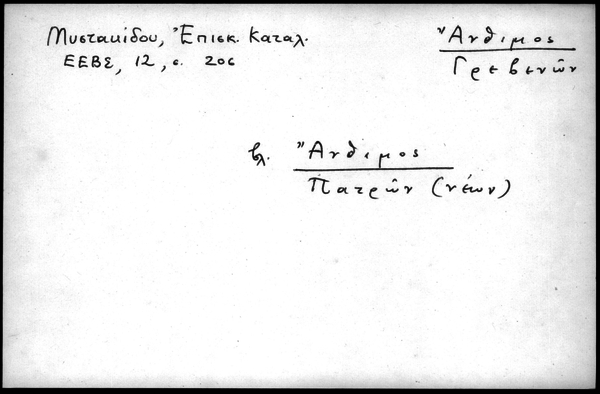 Μυστακίδου, Ἐπισκ. Καταλ.
ΕΕΒΣ, 12, σ. 206
Ἄνθιμος
Γρεβενῶν
βλ. Ἄνθιμος
Πατρῶν (νέων)